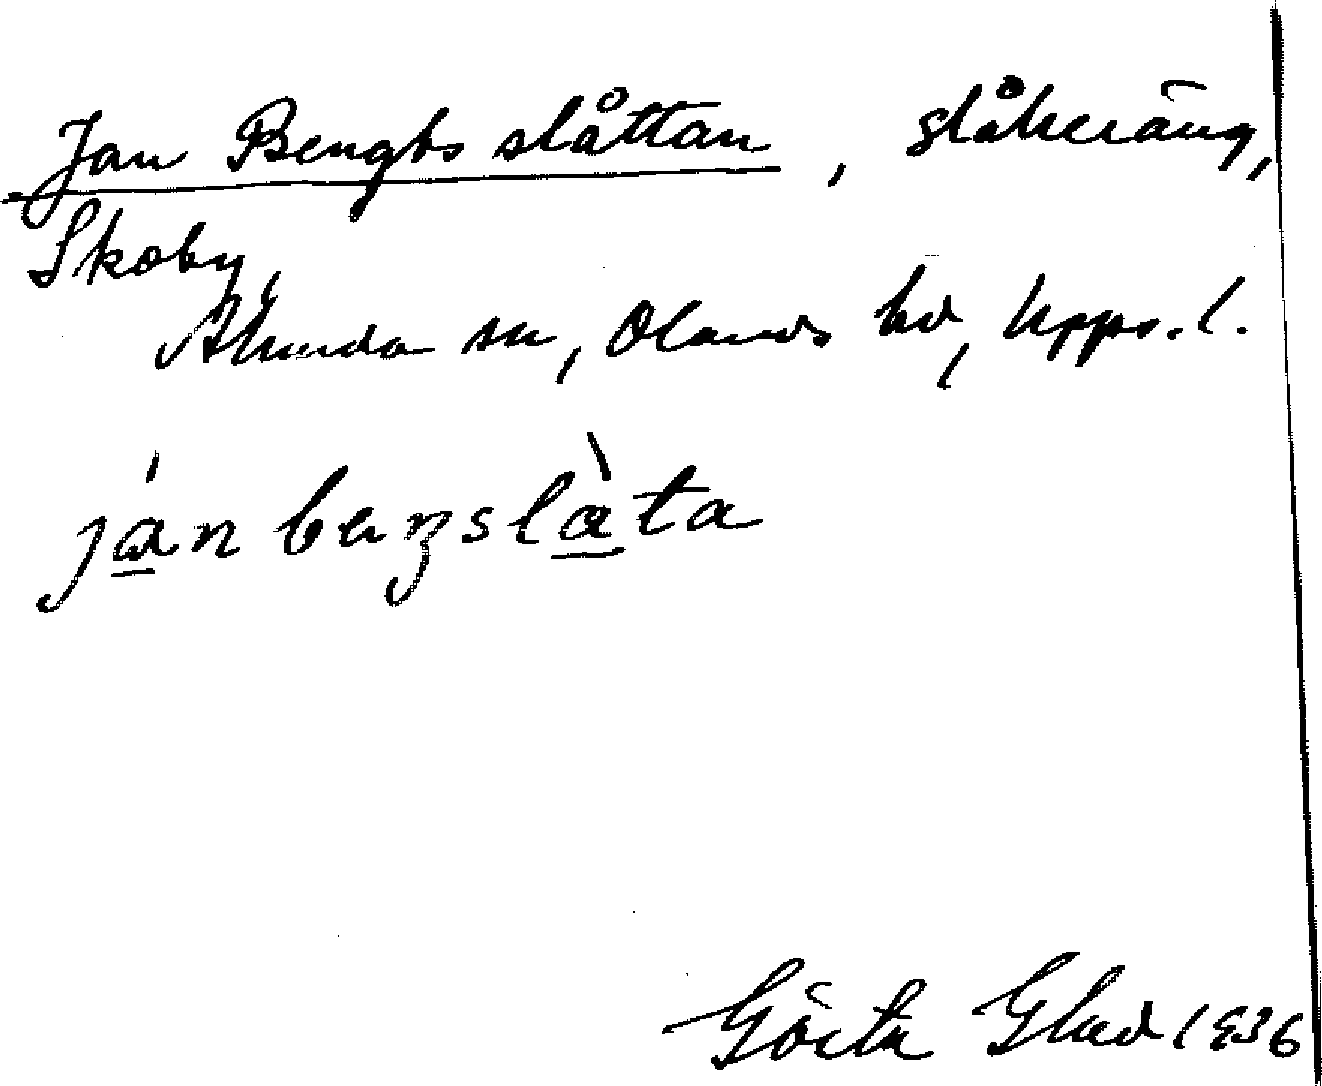 Jan Bengts slåttan, slåtteräng,
Skoby,
Alunda sn, Olands hd, Upps. l.
ján beŋslàta
Gösta Glad 1936